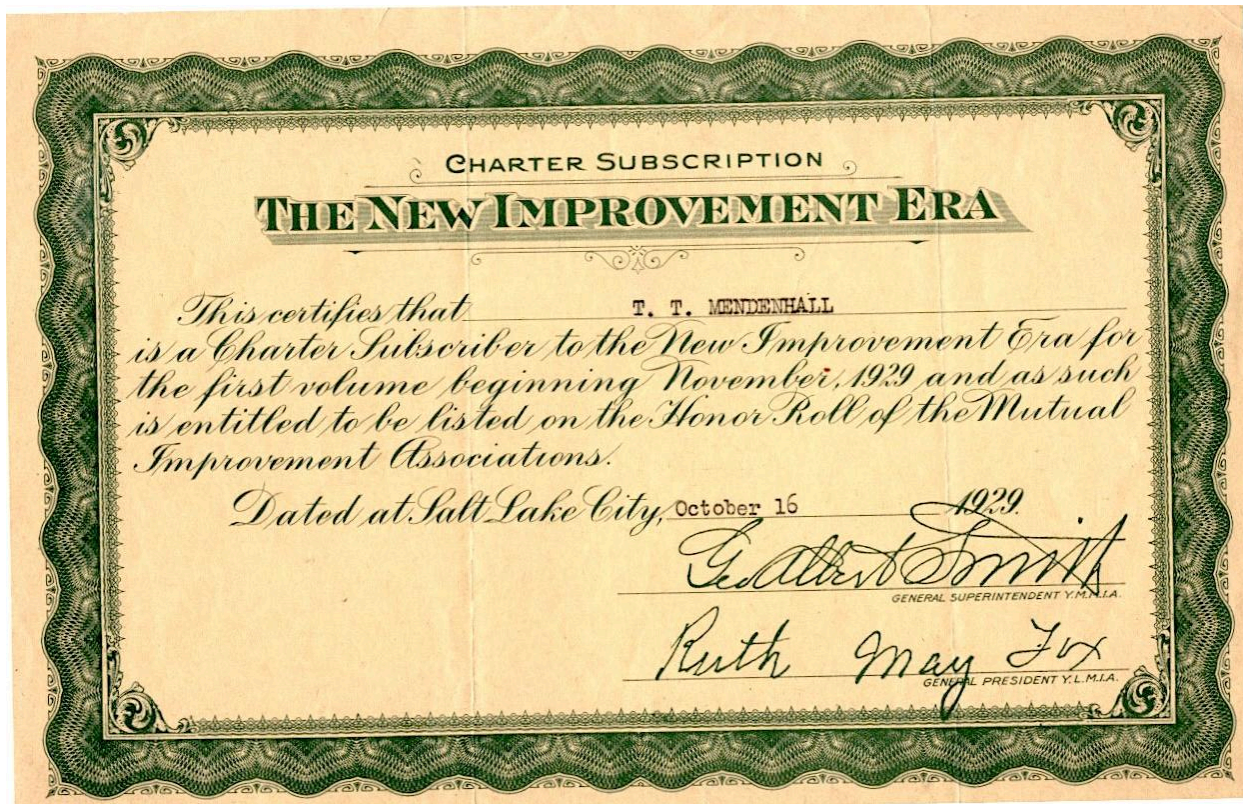 CHARTER SUBSCRIPTION
THE NEW IMPROVEMENT ERA
This certifies that T. T. MENDENHALL
is a Charter Subscriber to the New Improvement Era for
the first volume beginning November, 1929 and as such
is entitled to be listed on the Honor Roll of the Mutual
Improvement Associations.
Dated at Salt Lake City, October 16 1929.
Geo Albert Smith
GENERAL SUPERINTENDENT Y.M.M.I.A.
Ruth May Fox
GENERAL PRESIDENT Y.L.M.I.A.